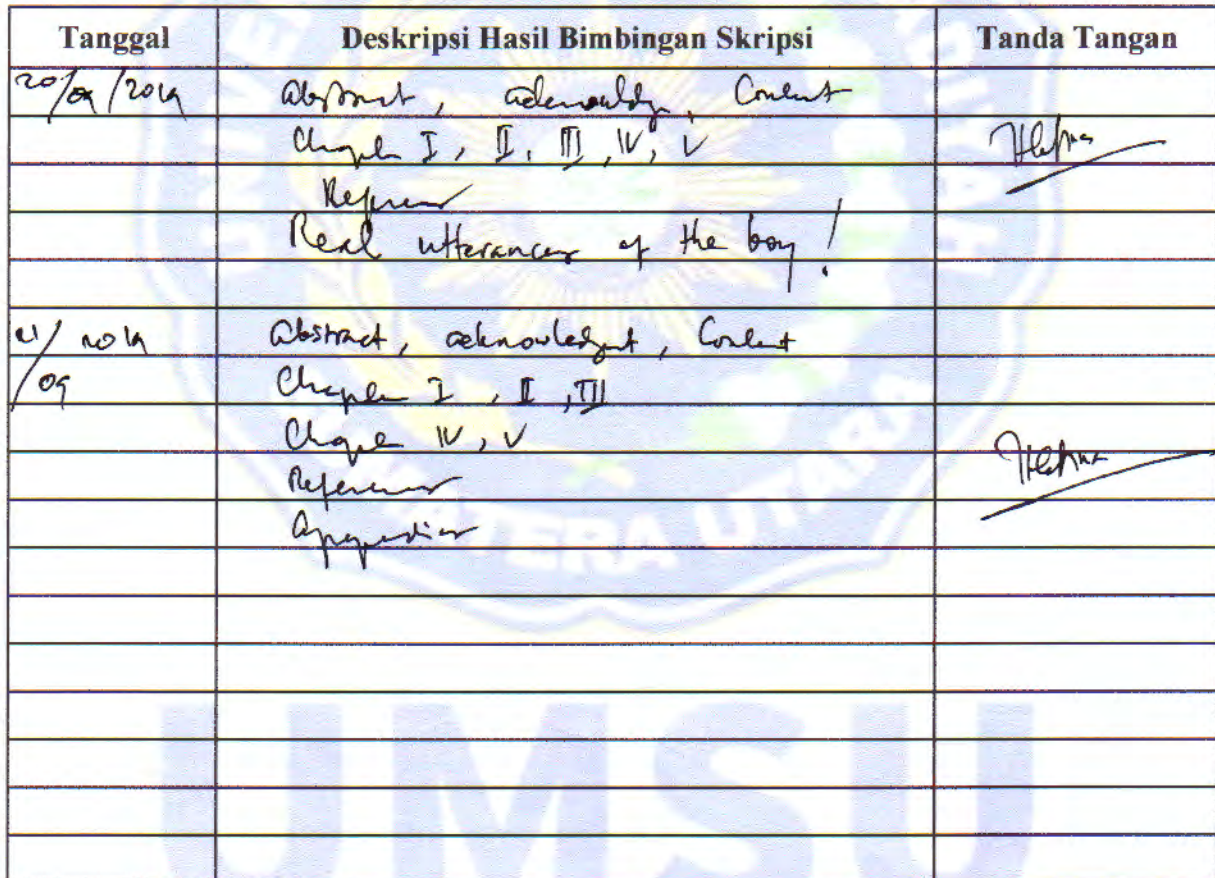 Tanggal Deskripsi Hasil Bimbingan Skripsi Tanda Tangan
20/09/2019 Abstract, Content
Chapter I, II, III, IV, V
References
Real utterances of the boy!
2019 Abstract, acknowledgment, Content
/09 Chapter I, II, III
Chapter IV, V
References
Appendices
SUMATERA UTARA
UMSU